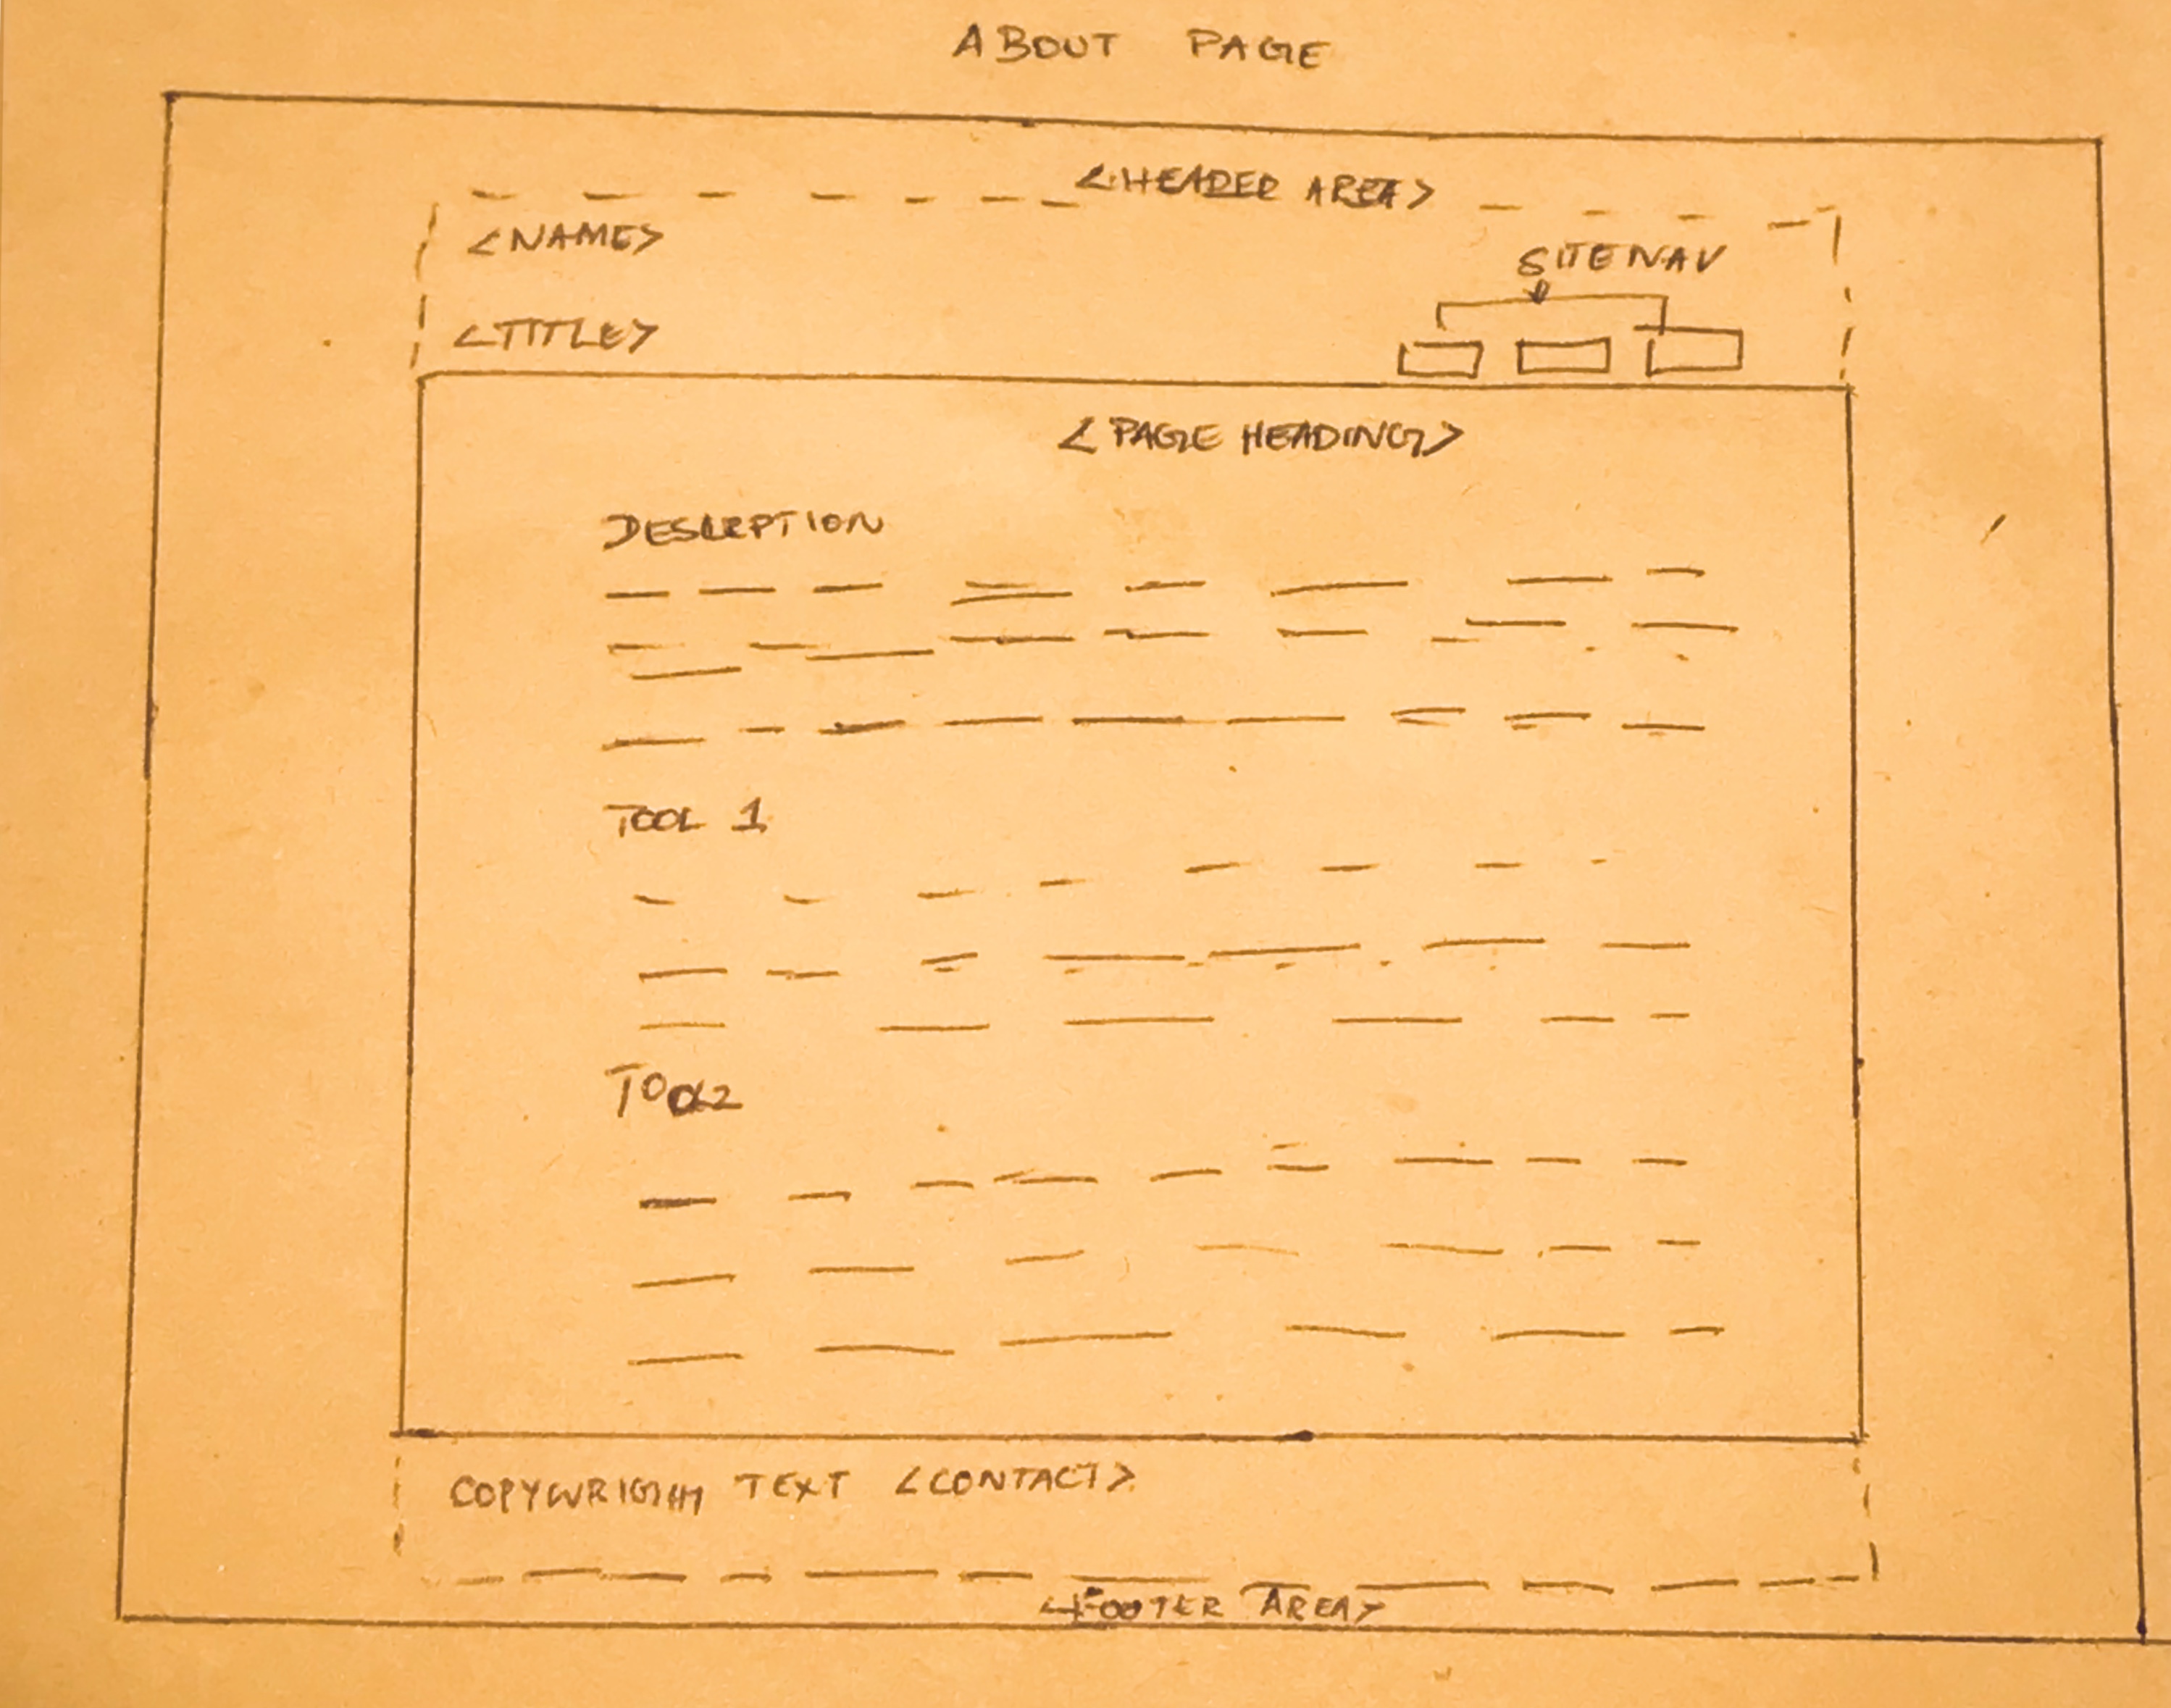 ABOUT PAGE
<HEADER AREA>
<NAME>
SITE NAV
<TITLE>
<PAGE HEADING>
DESCRPTION
TOOL 1
TOOL2
COPYWRIGHT TEXT <CONTACT>
<FOOTER AREA>